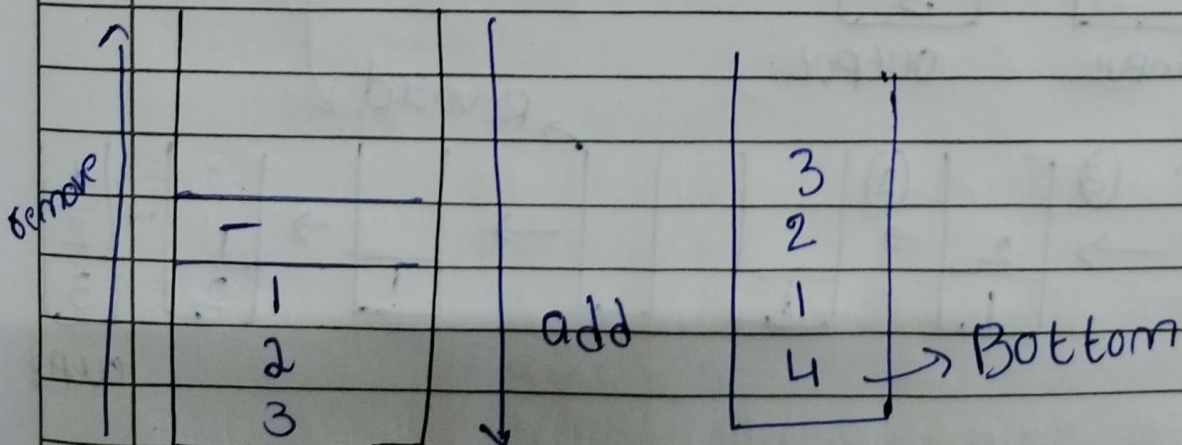 remove
-
1
2
3
add
3
2
1
4 → Bottom